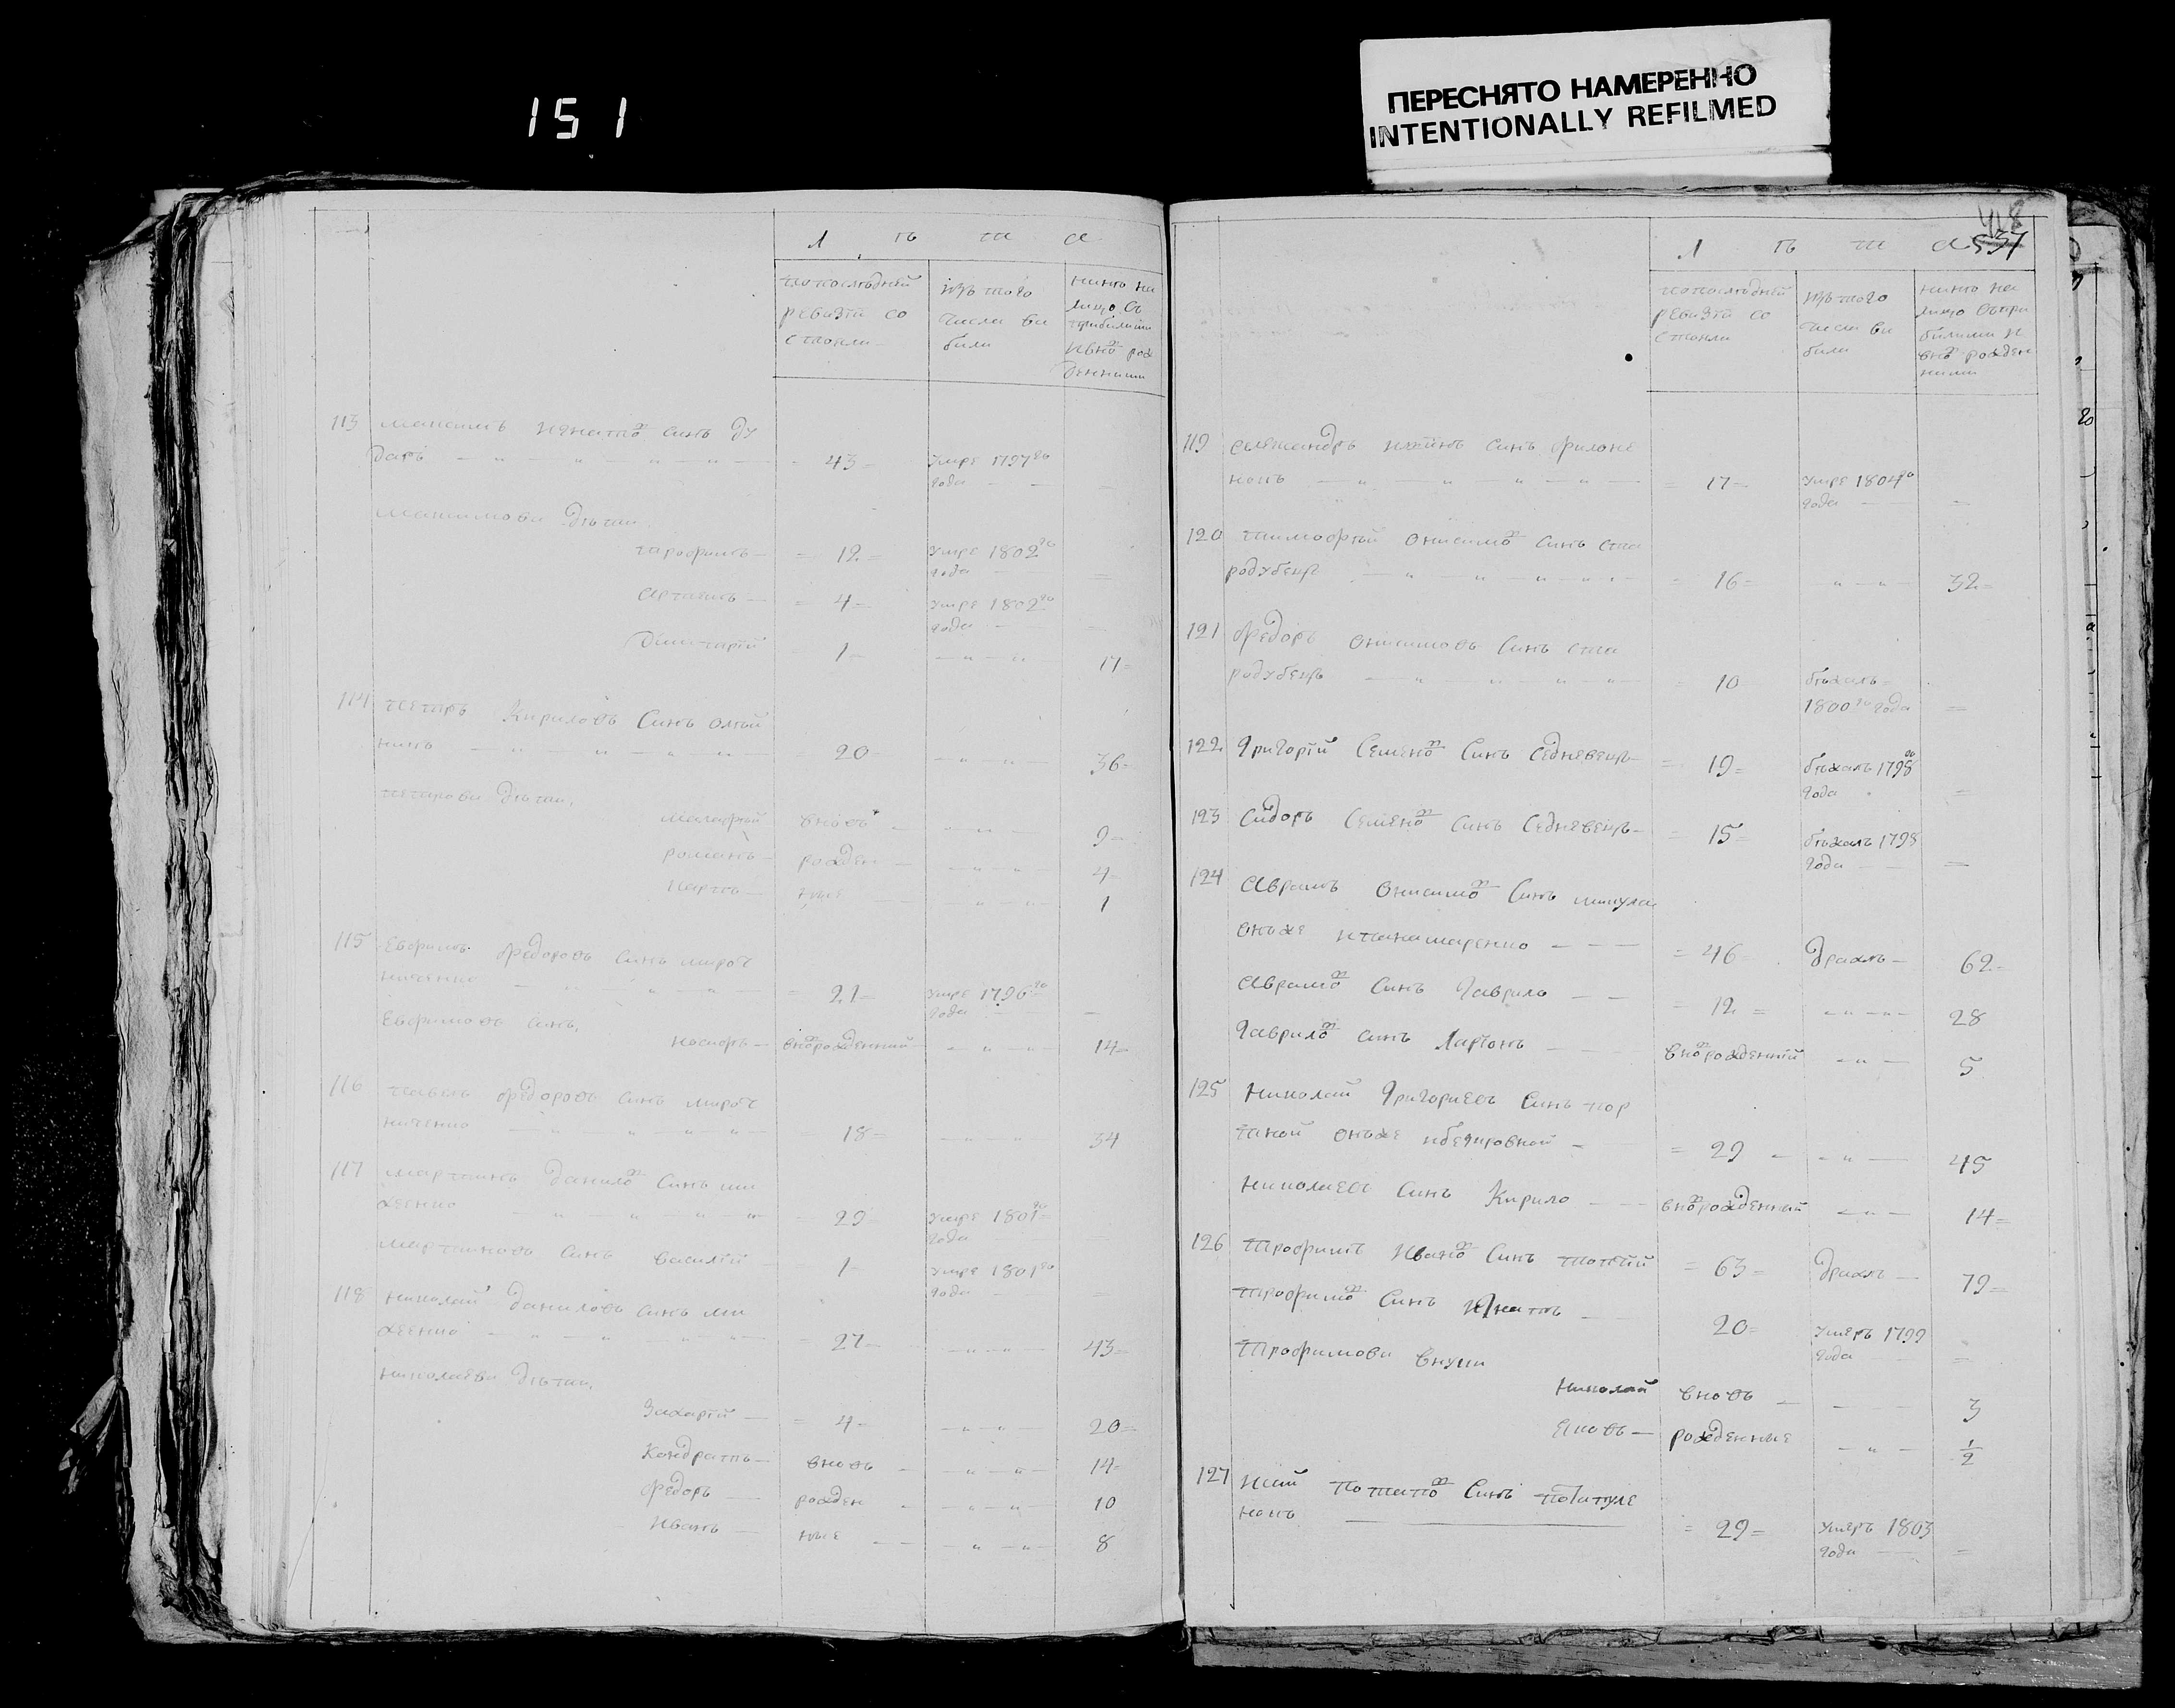 151
ПЕРЕСНЯТО НАМЕРЕННО
INTENTIONALLY REFILMED
Л ѣ т а
попослѣдней ревизіи со стояли
изъ того числа вы были
нинѣ на лицо съ прибилими ивно рож денними
113 максимъ игнато синъ ду
даръ 43 умре 1797го
года
максимови дѣти
трофимъ 12 умре 1802го
года
артемъ 4 умре 1802го
года
димитрій 1 17
114 петръ Кириловъ Синъ
нинъ 20 36
петрови дѣти,
малафей вновъ 9
романъ рожден 4
карпъ ние 1
115 Евфимъ федоровъ синъ мироч
ниченко 21 умре 1796го
года
Евфимовъ синъ,
иосифъ внорожденний 14
116 павелъ федоровъ синъ мироч
ниченко 18 34
117 мартинъ данило синъ ми
хеенко 29 умре 1801го
года
мартиновъ синъ василій 1 умре 1801го
года
118 николай даниловъ синъ ми
хеенко 27 43
николаеви дѣти,
Захарій 4 20
Кондратъ вновъ 14
федоръ рожден 10
иванъ ние 8
418
537
Л ѣ т а
попослѣдней ревизіи со стояли
изъ того числа вы были
нинѣ на лицо съпри билими и вно рожден ними
119 александръ синъ филоне
нокъ 17 умре 1804го
года
120 тимофѣй онисимо синъ ста
родубецъ 16 32
121 федоръ онисимовъ Синъ ста
родубецъ 10 бѣжалъ
1800го года
122 григорій Семено Синъ Седневецъ 19 бѣжалъ 1798го
года
123 Сидоръ Семено синъ Седневецъ 15 бѣжалъ 1798
года
124 аврамъ онисимо Синъ микула
онъже 46 дряхлъ 62
аврамо синъ гаврило 12 28
гаврило синъ Ларіонъ внорожденній 5
125 николай григориевъ Синъ пор
тной онъже 29 45
николаевъ Синъ Кирило внорожденний 14
126 трофимъ ивано Синъ 63 дряхлъ 79
трофимо синъ игнатъ 20 умеръ 1799
года
трофимови внуки
николай вновъ 3
яковъ рожденние 1/2
127 потапо Синъ
нокъ 29 умеръ 1803
года